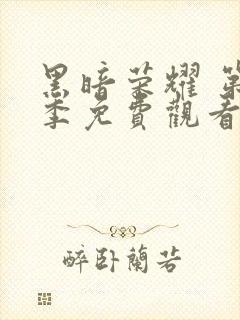 黑暗荣耀 第
季免費觀看
醉卧蘭若